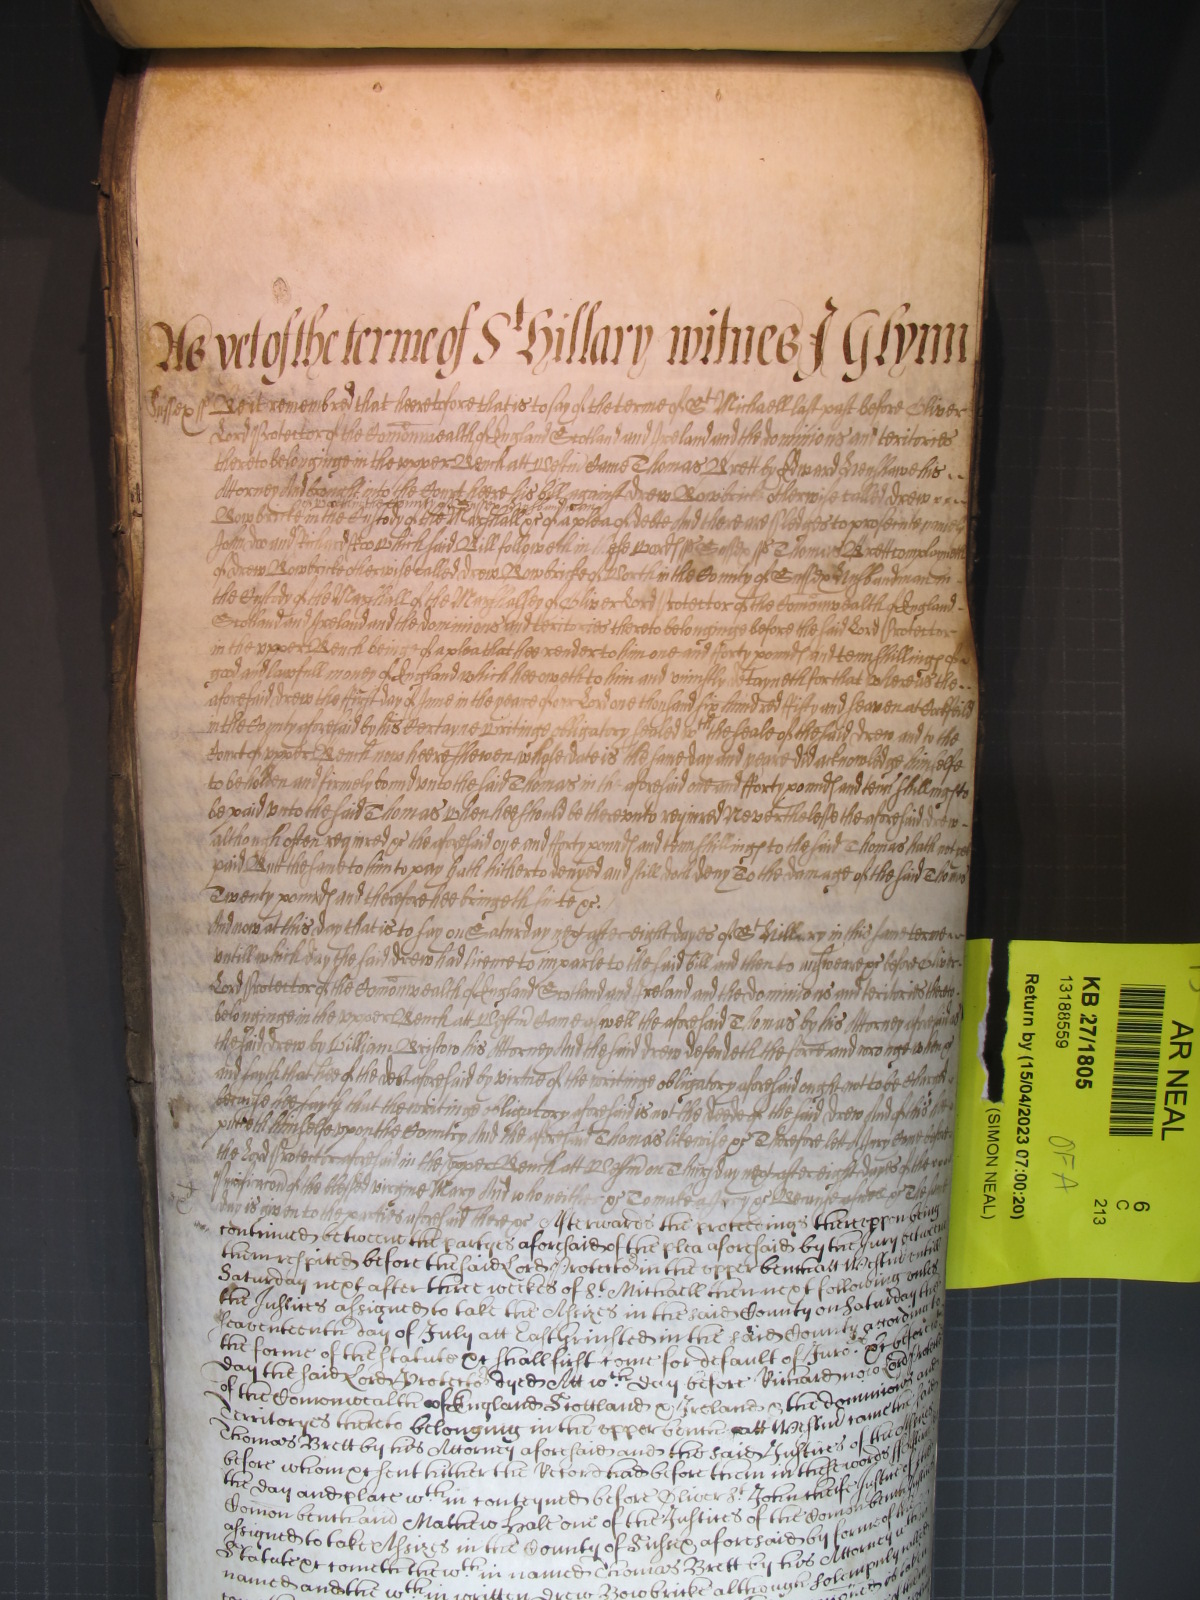 As yet of the terme of St Hillary witnes J Glynn
Sussex ss Be it remembred that heeretofore that is to say of the terme of St Michaell last past before Oliver
Lord Protector of the Comonwealth of England Scotland and Ireland and the dominions and teritories
thereto belonginge in the upper Bench att Westm Came Thomas Brett by Edward Henslowe his
Attorney And brought into the Court heere his bill against drew Bowbricke otherwise called drew
Bowbricke in the Custody of the Marshall &c of a plea of debte And there are pledges to prosecute
John doo and Richard Roo which said Bill followeth in these words ss Sussex ss Thomas Brett complayneth
of drew Bowbricke otherwise called drew Bowbricke of Worth in the County of Sussex Husbandman in
the Custody of the Marshall of the Marshalsey of Oliver Lord Protector of the Comonwealth of England
Scotland and Ireland and the dominions and teritories thereto belonginge before the said Lord Protector
in the upper Bench beinge of a plea that hee render to him one and fforty pounds and tenn shillings of
good and lawfull money of England which hee oweth to him and uniustly detayneth for that Whereas the
aforesaid drew the ffirst day of June in the yeare of our Lord one thousand six hundred fifty and seaven at
in the County aforesaid by his Certayne writinge obligatory sealed wth the seale of the said drew and to the
Court of upper Bench now heere shewen whose date is the same day and yeare did acknowledge himselfe
to be holden and firmely bound unto the said Thomas in the aforesaid one and fforty pounds and tenn shillings to
be paid unto the said Thomas when hee should be thereunto required Neverthelesse the aforesaid drew
although often required &c the aforesaid one and fforty pounds and tenn shillings to the said Thomas hath not yet
paid But the same to him to pay hath hitherto denyed and still doth deny To the damage of the said Thomas
Twenty pounds and therefore hee bringeth suite &c.
And now at this day that is to say on Saturday next after eight dayes of St Hillary in this same terme
untill which day the said drew had licence to imparle to the said bill and then to answeare &c before Oliver
Lord Protector of the Comonwealth of England Scotland and Ireland and the dominions and teritories thereto
belonginge in the upper Bench att Westm Came as well the aforesaid Thomas by his Attorney aforesaid as
the said drew by William Bristow his Attorney And the said drew defendeth the force and wronge when &c
and sayth that hee of the debt aforesaid by virtue of the writinge obligatory aforesaid ought not to be Charged
because hee sayth that the writinge obligatory aforesaid is not the deede of the said drew And of this hee
putteth himselfe uppon the Country And the aforesaid Thomas likewise &c Therefore lett a Jury Come before
the Lord Protector aforesaid in the upper Bench att Westm on Thursday next after eight dayes of the
Purificacon of the blessed virgine Mary And who neither &c To make a Jury &c Because as well &c The same
day is given to the parties aforesaid there &c Afterwards the proceedings thereuppon being
continued betweene the partyes aforesaid of the plea aforesaid by the Jury betweene
them respited before the said Lord Protector in the upper bench att Westm untill
Saturday next after three weekes of St Michaell then next following unles
the Justices assigned to take the Assizes in the said County on Saturday the
seaventeenth day of July att Eastgrinsted in the said County accordinge to
the forme of the Statute &c shall first come for default of Jurors &c before wch
day the said Lord Protector dyed Att wch day before Richard now Lord Protector
of the Comonwealth of England Scottland & Ireland & the dominions and
Territoryes thereto belonging in the upper bench att Westm came the said
Thomas Brett by his Attorney aforesaid and the said Justices of the Assizes
before whom &c sent hither the Record had before them in these words ss Afterwards
the day and place wth in conteyned before Oliver St John cheife Justice of the
Comon bench and Mathew Hale one of the Justices of the Comon bench
assigned to take Assizes in the County of Sussex aforesaid by forme of the
Statute &c cometh the wth in named Thomas Brett by his Attorney
named and the wth in written drew Bowbricke although solempnly called
AR NEAL
KB 27/1805
13188559
Return by (15/04/2023 07:00:20)
(SIMON NEAL)
6
C
213
OF A